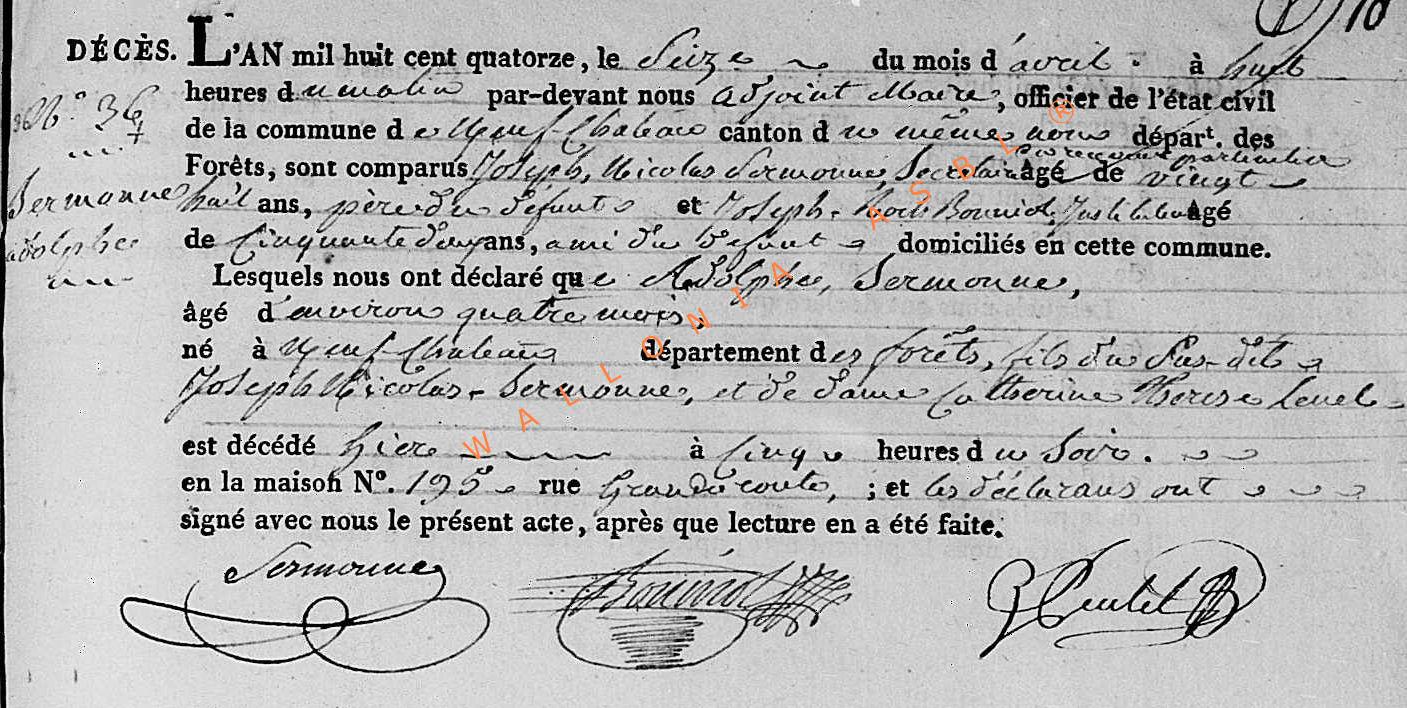 DÉCÈS. L'AN mil huit cent quatorze, le Seize du mois d'avril à huit
heures du matin par-devant nous adjoint Maire, officier de l'état civil
N.° 36
de la commune de Neuf-Chateau canton du même nom départ. des
du receveur particulier
Forêts, sont comparus Joseph, Nicolas Sermonne, Secretaire âgé de vingt
Sermonne
huit ans, père du défunt et Joseph Bouniol, âgé
adolphe
de Cinquante deux ans, ami du défunt domiciliés en cette commune.
Lesquels nous ont déclaré que Adolphe, Sermonne,
âgé d'environ quatre mois,
né à Neuf-Chateau département des forêts, fils du Sus-dit
Joseph Nicolas Sermonne, et de dame Catherine Therese
est décédé hier à Cinq heures du Soir.
en la maison N°. 195 rue Grande ; et les déclarans ont
signé avec nous le présent acte, après que lecture en a été faite.
Sermonne Bouniol
WALLONIA ASBL ®